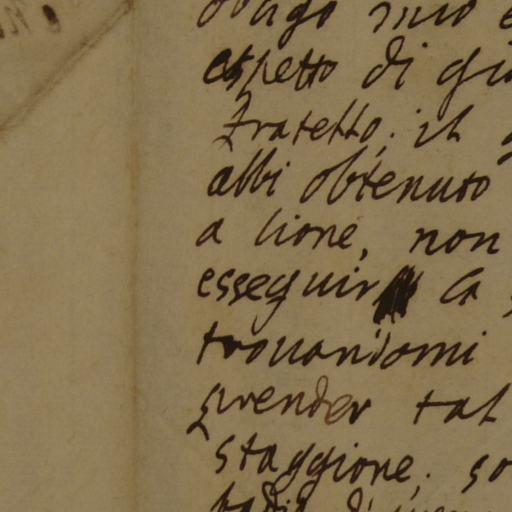 obligo mio e
aspetto di gi
fratello; il
abbi obtenuto
a lione, non
esseguir la
trouandomi
prender tal
staggione; so